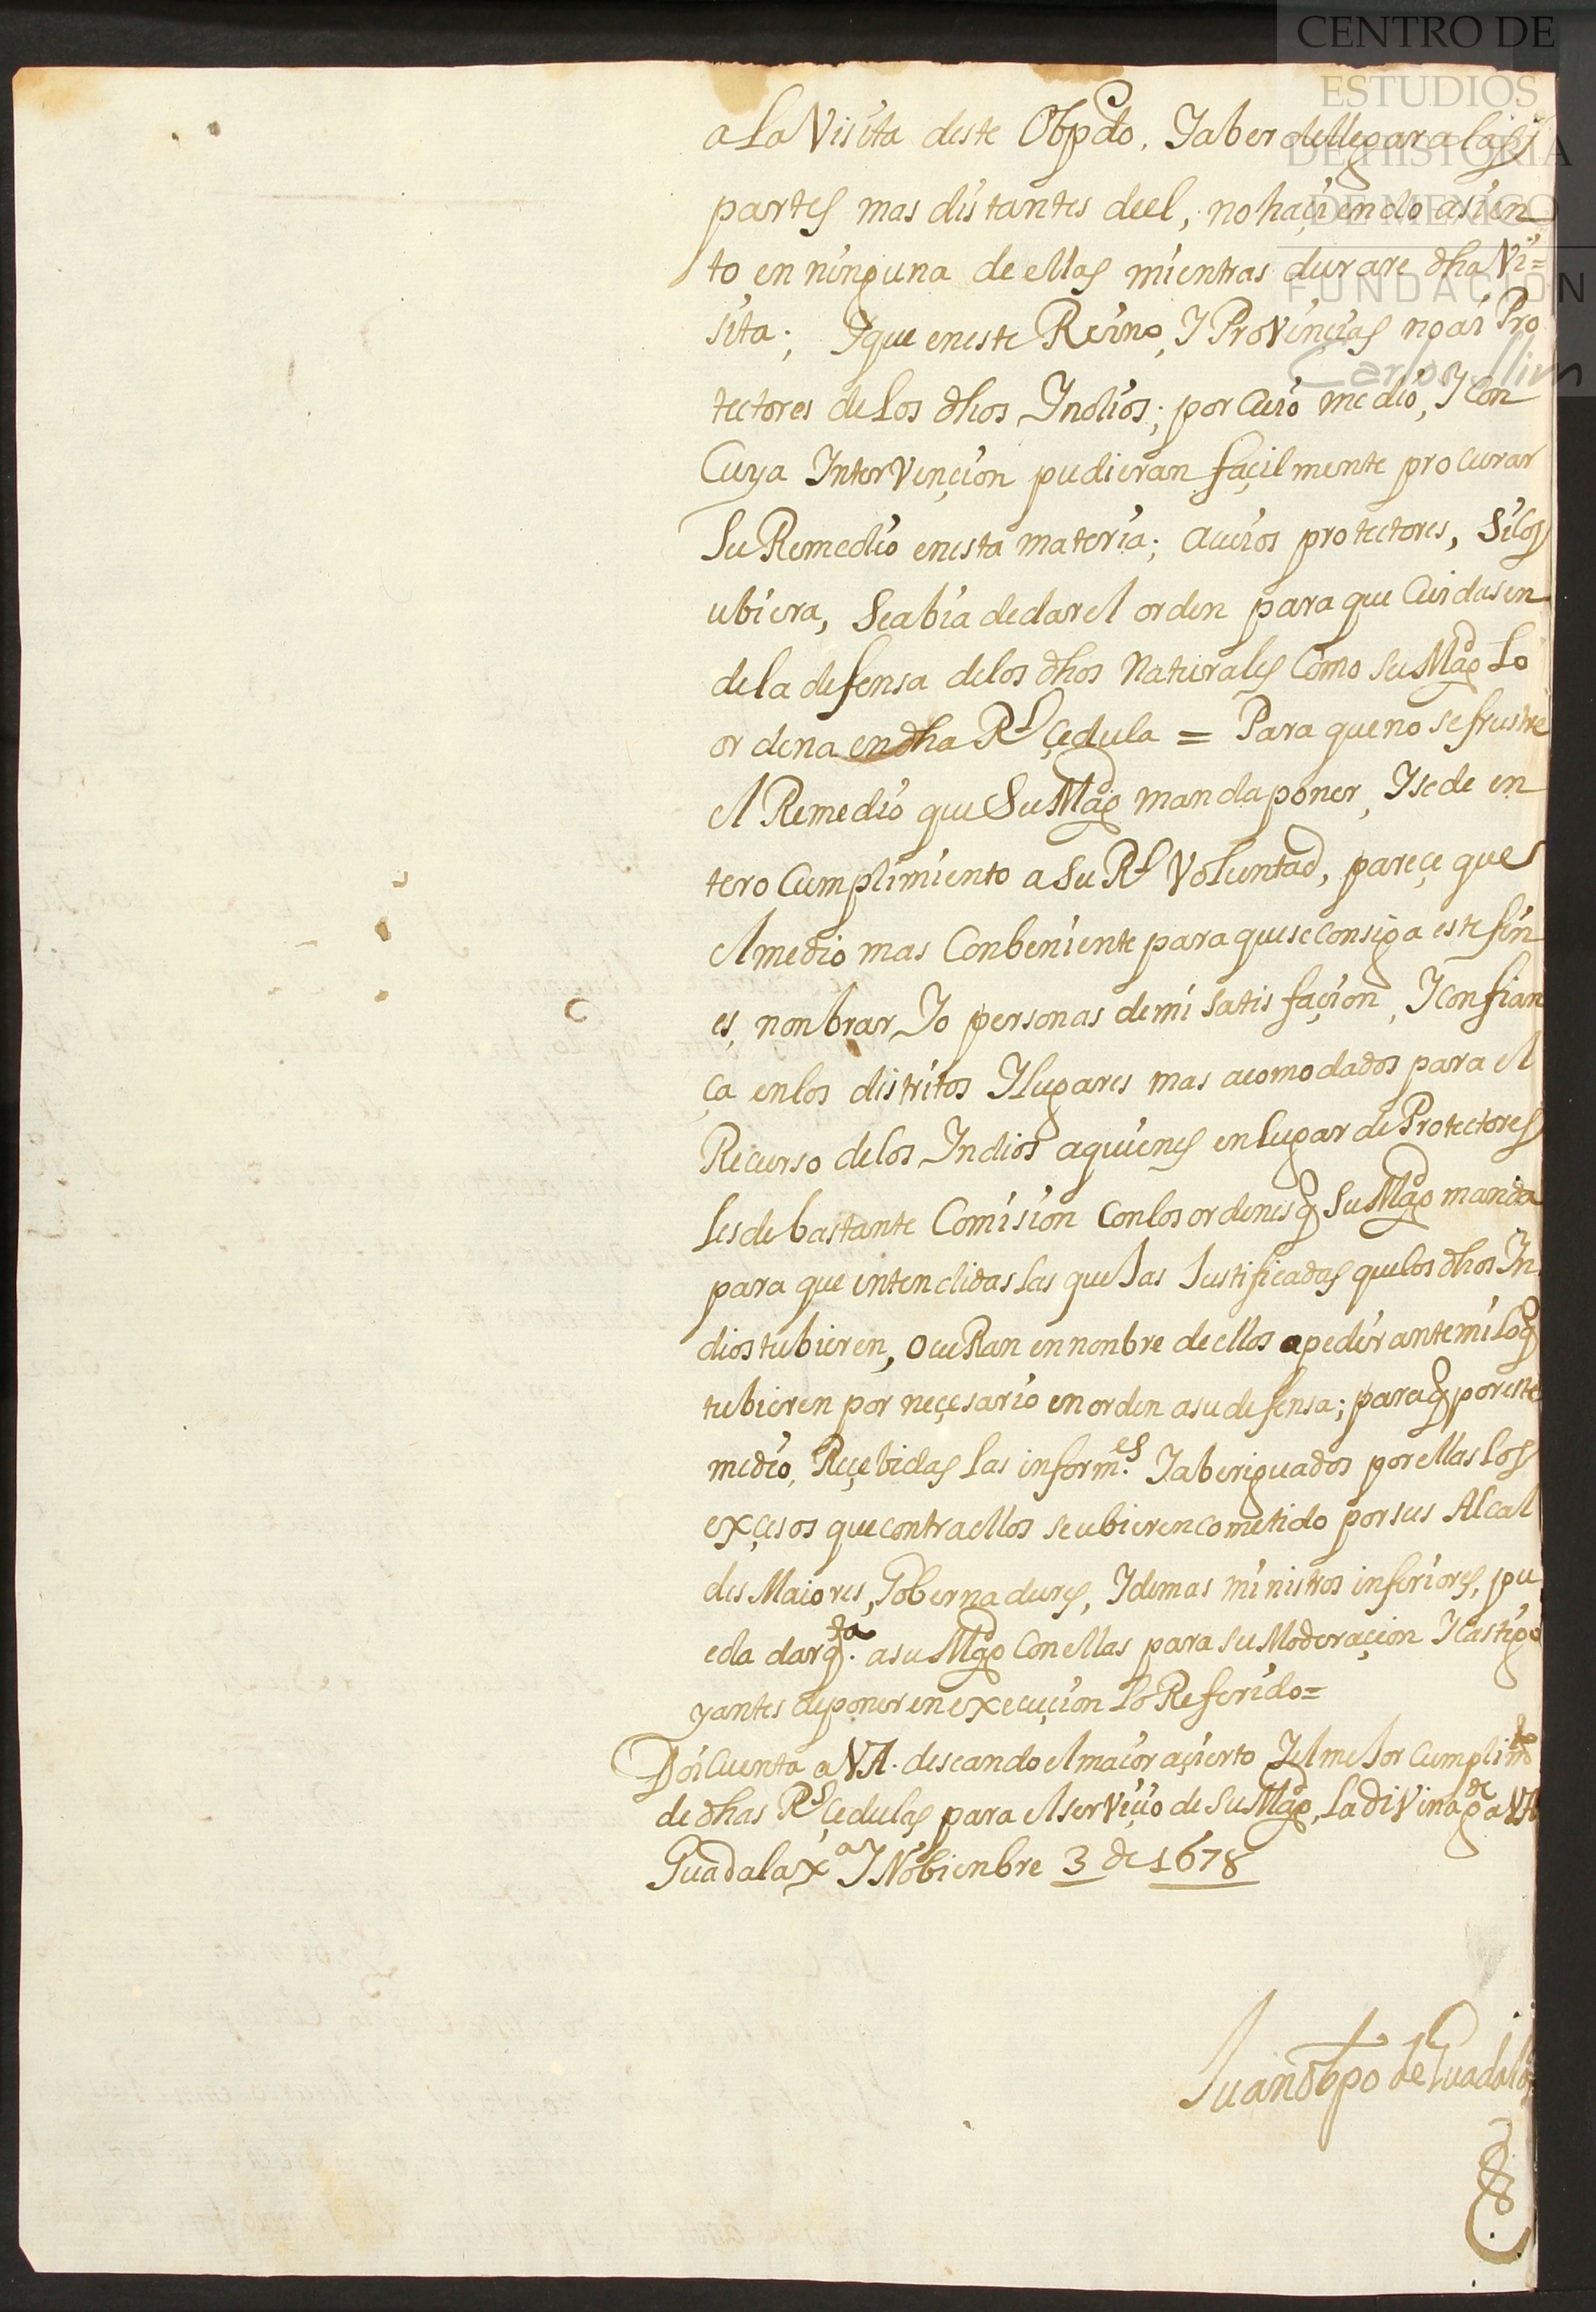 CENTRO DE
ESTUDIOS
DE HISTORIA
DE MEXICO
FUNDACIÓN
Carlos Slim
a la Visita deste Obpdo, Y aber de llegar a las
partes mas distantes de el, no haçiendo asien
to en ninguna de ellas mientras durare dha Vi=
sita; Y que en este Reino, Y Provinçias no ai Pro
tectores de los dhos Yndios; por cuio medio, Y con
Cuya Intervençion pudieran façilmente procurar
Su Remedio en esta materia; a cuios protectores, Si los
ubiera, Se abia de dar el orden para que Cuidasen
de la defensa de los dhos Naturales Como su Magd lo
ordena en dha Rl çedula = Para que no se frustre
el Remedio que Su Magd manda poner, Y se de en
tero Cumplimiento a Su Rl Voluntad, pareçe que
el medio mas Conbeniente para que se consiga este fin
es, nonbrar Yo personas de mi satisfaçion, Y confian
ça en los distritos Y lugares mas acomodados para el
Recurso de los Yndios a quienes en lugar de Protectores
les de bastante Comision Con los ordenes q Su Magd manda
para que entendidas las queJas Justificadas que los dhos Yn
dios tubieren, ocuRan en nonbre de ellos a pedir ante mi lo q
tubieren por neçesario en orden a su defensa; para q por este
medio, Reçebidas las informes. Y aberiguados por ellas los
exçesos que contra ellos se ubieren cometido por sus Alcal
des Maiores, Gobernadures, Y demas ministros inferiores, pu
eda dar qta. a su Magd Con ellas para su Moderaçion Y castigo
y antes de poner en execuçion lo Referido=
Doi Cuenta a VA. deseando el maior açierto Y el meJor Cumplimto
de dhas Rs çedulas para el serViçio de Su Magd, la diVina gde a VA
Guadalaxa Y Nobienbre 3 de 1678
Juan obpo de Guadalaxa